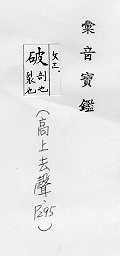 彙音寶鑑
破
剖也
裂也
(高上去聲、
P.295)